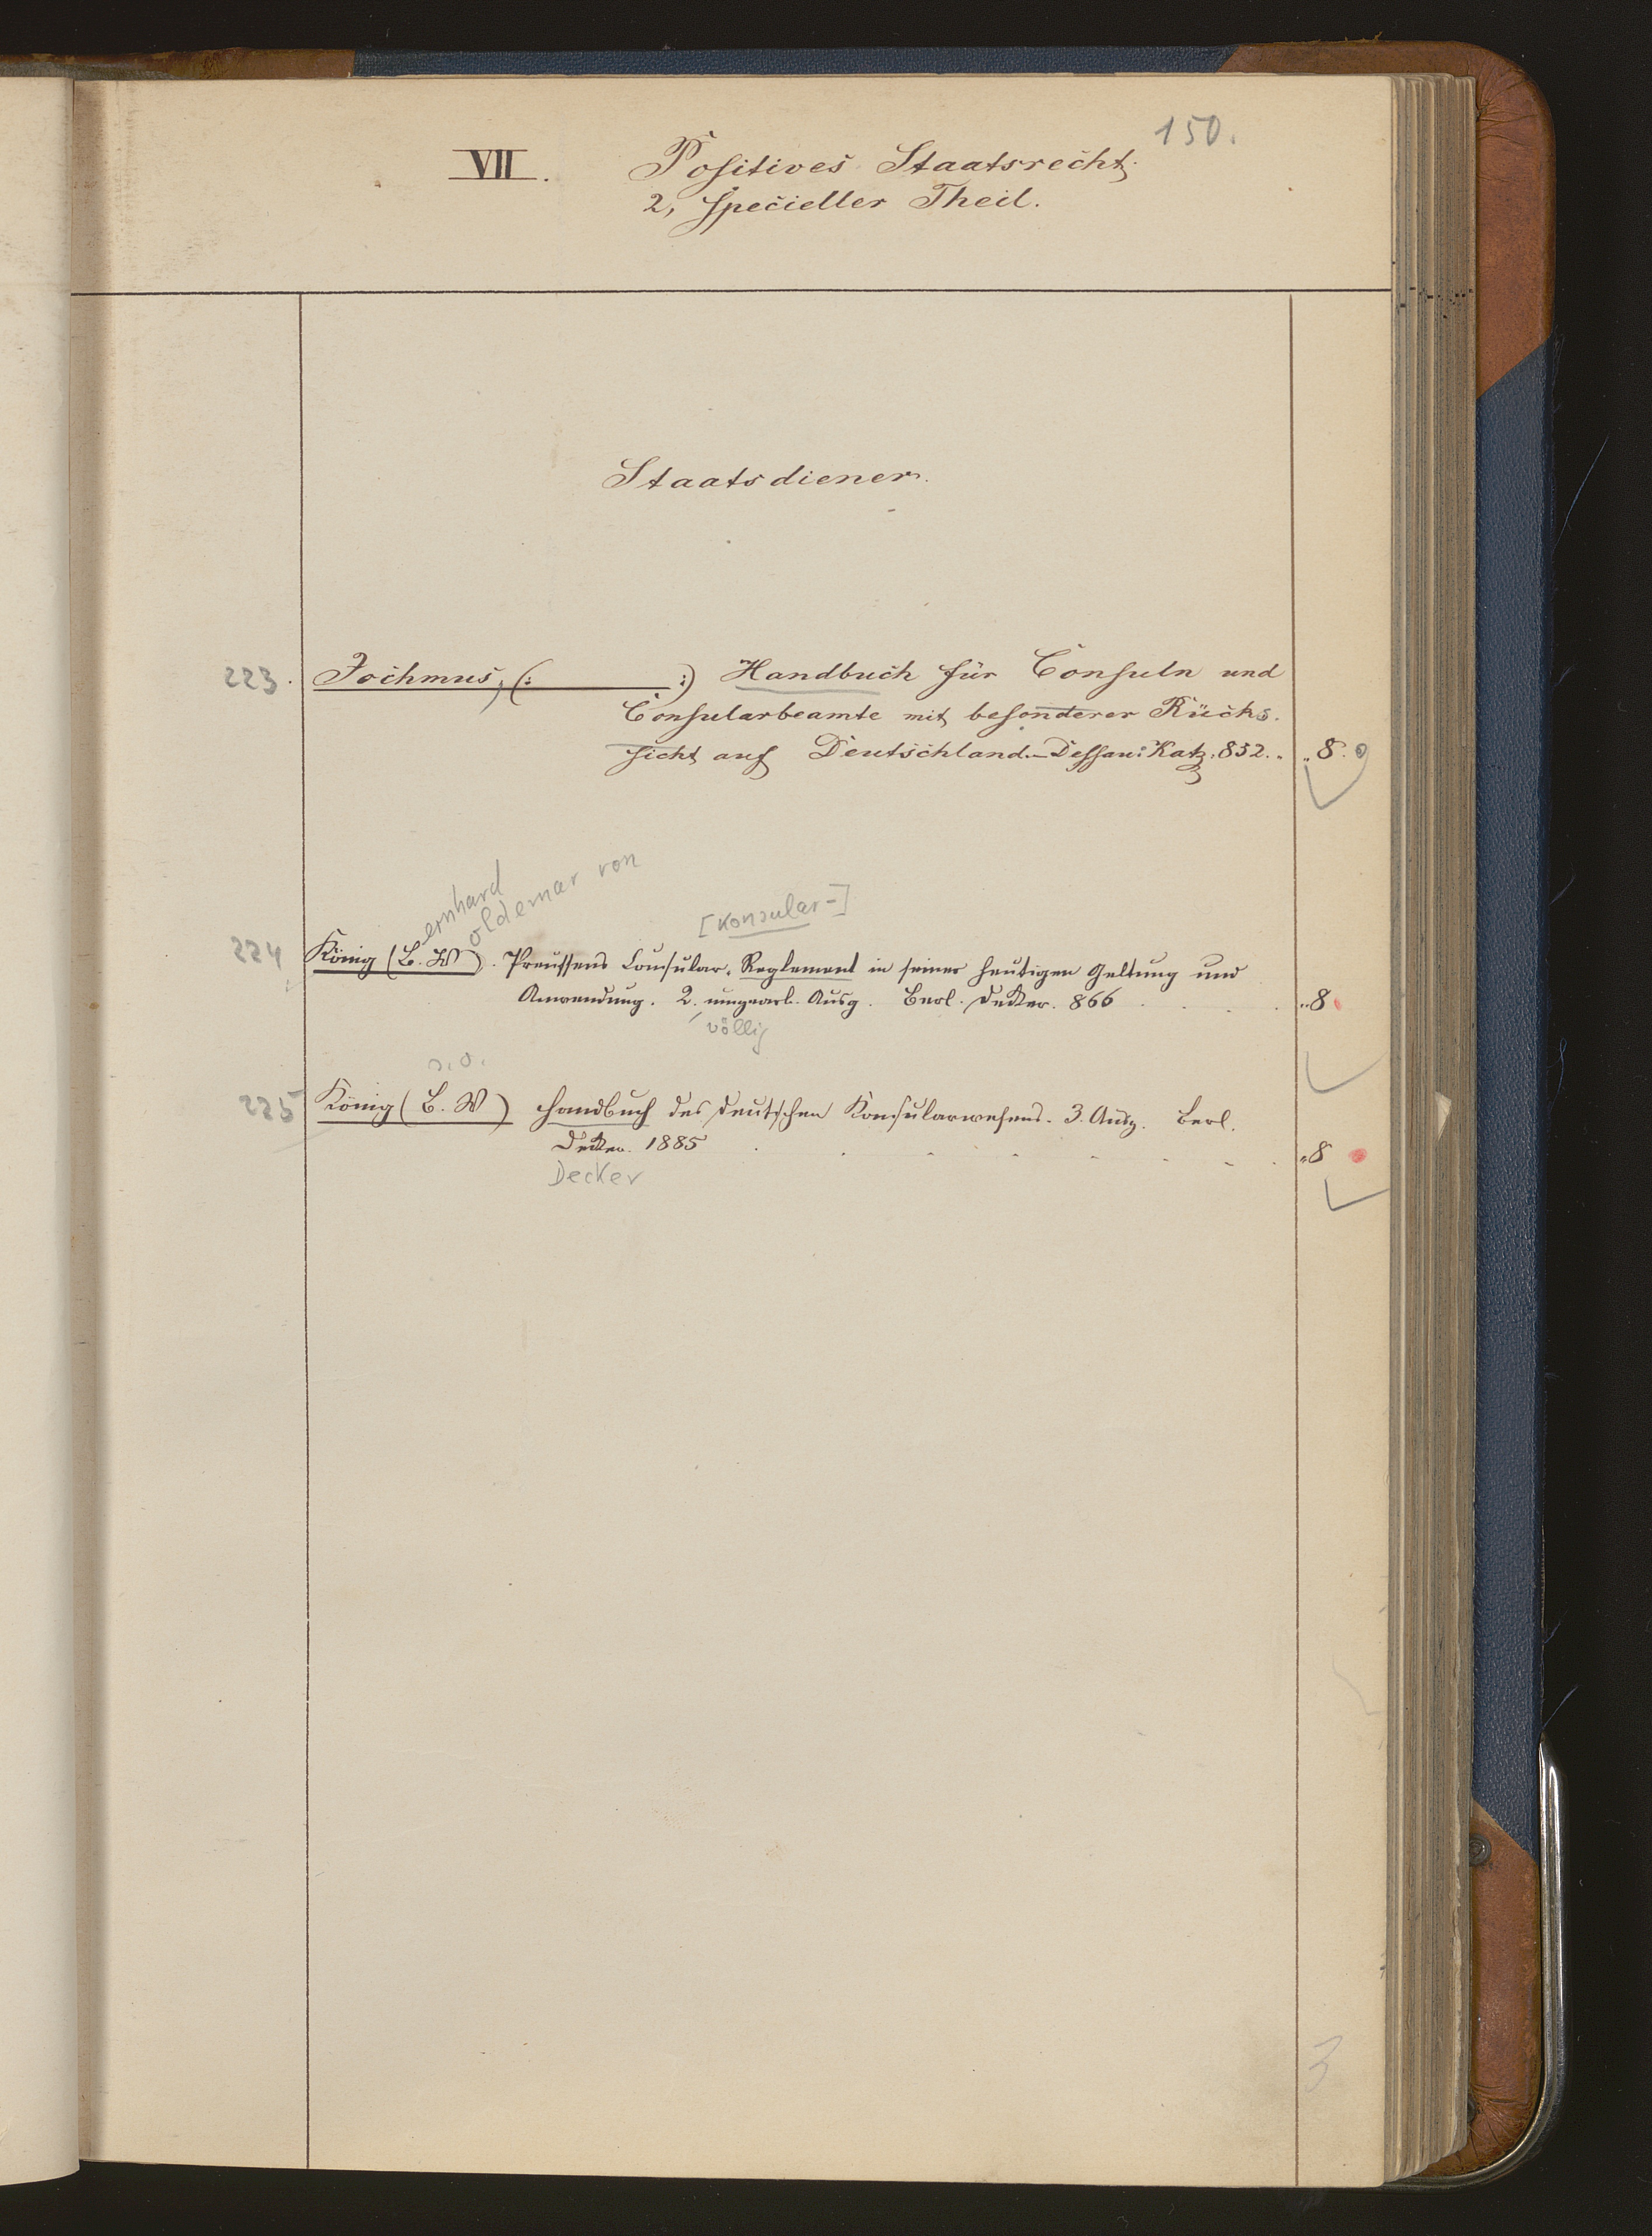 150.
VII. Positives Staatsrecht.
2, specieller Theil.
Staatsdiener.
223. Jochmus, (: :) Handbuch für Consuln und
Consularbeamte mit besonderer Rücks.
sicht auf Deutschland.- Dessau: Katz. 852. „8.
ernhard
oldemar von
[Konsular-]
224 König (B. W). Preussens Consular-Reglement in seiner heutigen Geltung und
Anwendung. 2. umgearb. Ausg. Berl. Decker. 866 . . . „8
völlig
s.o.
225 König (B. W) Handbuch des deutschen Konsularwesens. 3. Ausg. Berl.
Decker. 1885 . . . . . . . „8
Decker
3